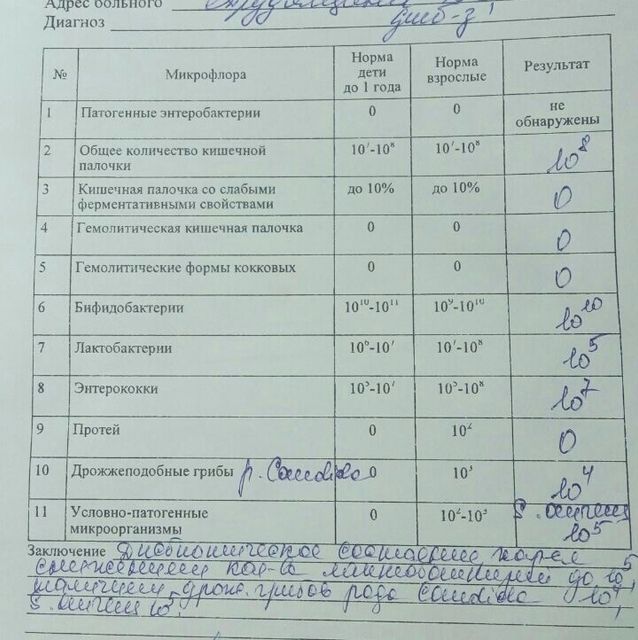 Адрес больного
Диагноз
№ Микрофлора Норма дети до 1 года Норма взрослые Результат
1 Патогенные энтеробактерии 0 0 не обнаружены
2 Общее количество кишечной палочки 10⁷-10⁸ 10⁷-10⁸ 10⁸
3 Кишечная палочка со слабыми ферментативными свойствами до 10% до 10% 0
4 Гемолитическая кишечная палочка 0 0 0
5 Гемолитические формы кокковых 0 0 0
6 Бифидобактерии 10¹⁰-10¹¹ 10⁹-10¹⁰ 10¹⁰
7 Лактобактерии 10⁶-10⁷ 10⁷-10⁸ 10⁵
8 Энтерококки 10⁵-10⁷ 10⁵-10⁸ 10⁷
9 Протей 0 10² 0
10 Дрожжеподобные грибы р. Candida 0 10³ 10⁴
11 Условно-патогенные микроорганизмы 0 10²-10³ 10⁵
Заключение Дисбиотическое состояние
снижением кол-ва лактобактерий до 10⁵,
наличием дрож. грибов рода Candida 10⁴,
10⁵.